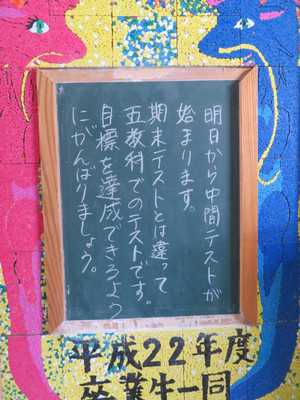 明日から中間テストが
始まります。
期末テストとは違って
五教科でのテストです。
目標を達成できるよう
にがんばりましょう。
平成22年度
卒業生一同